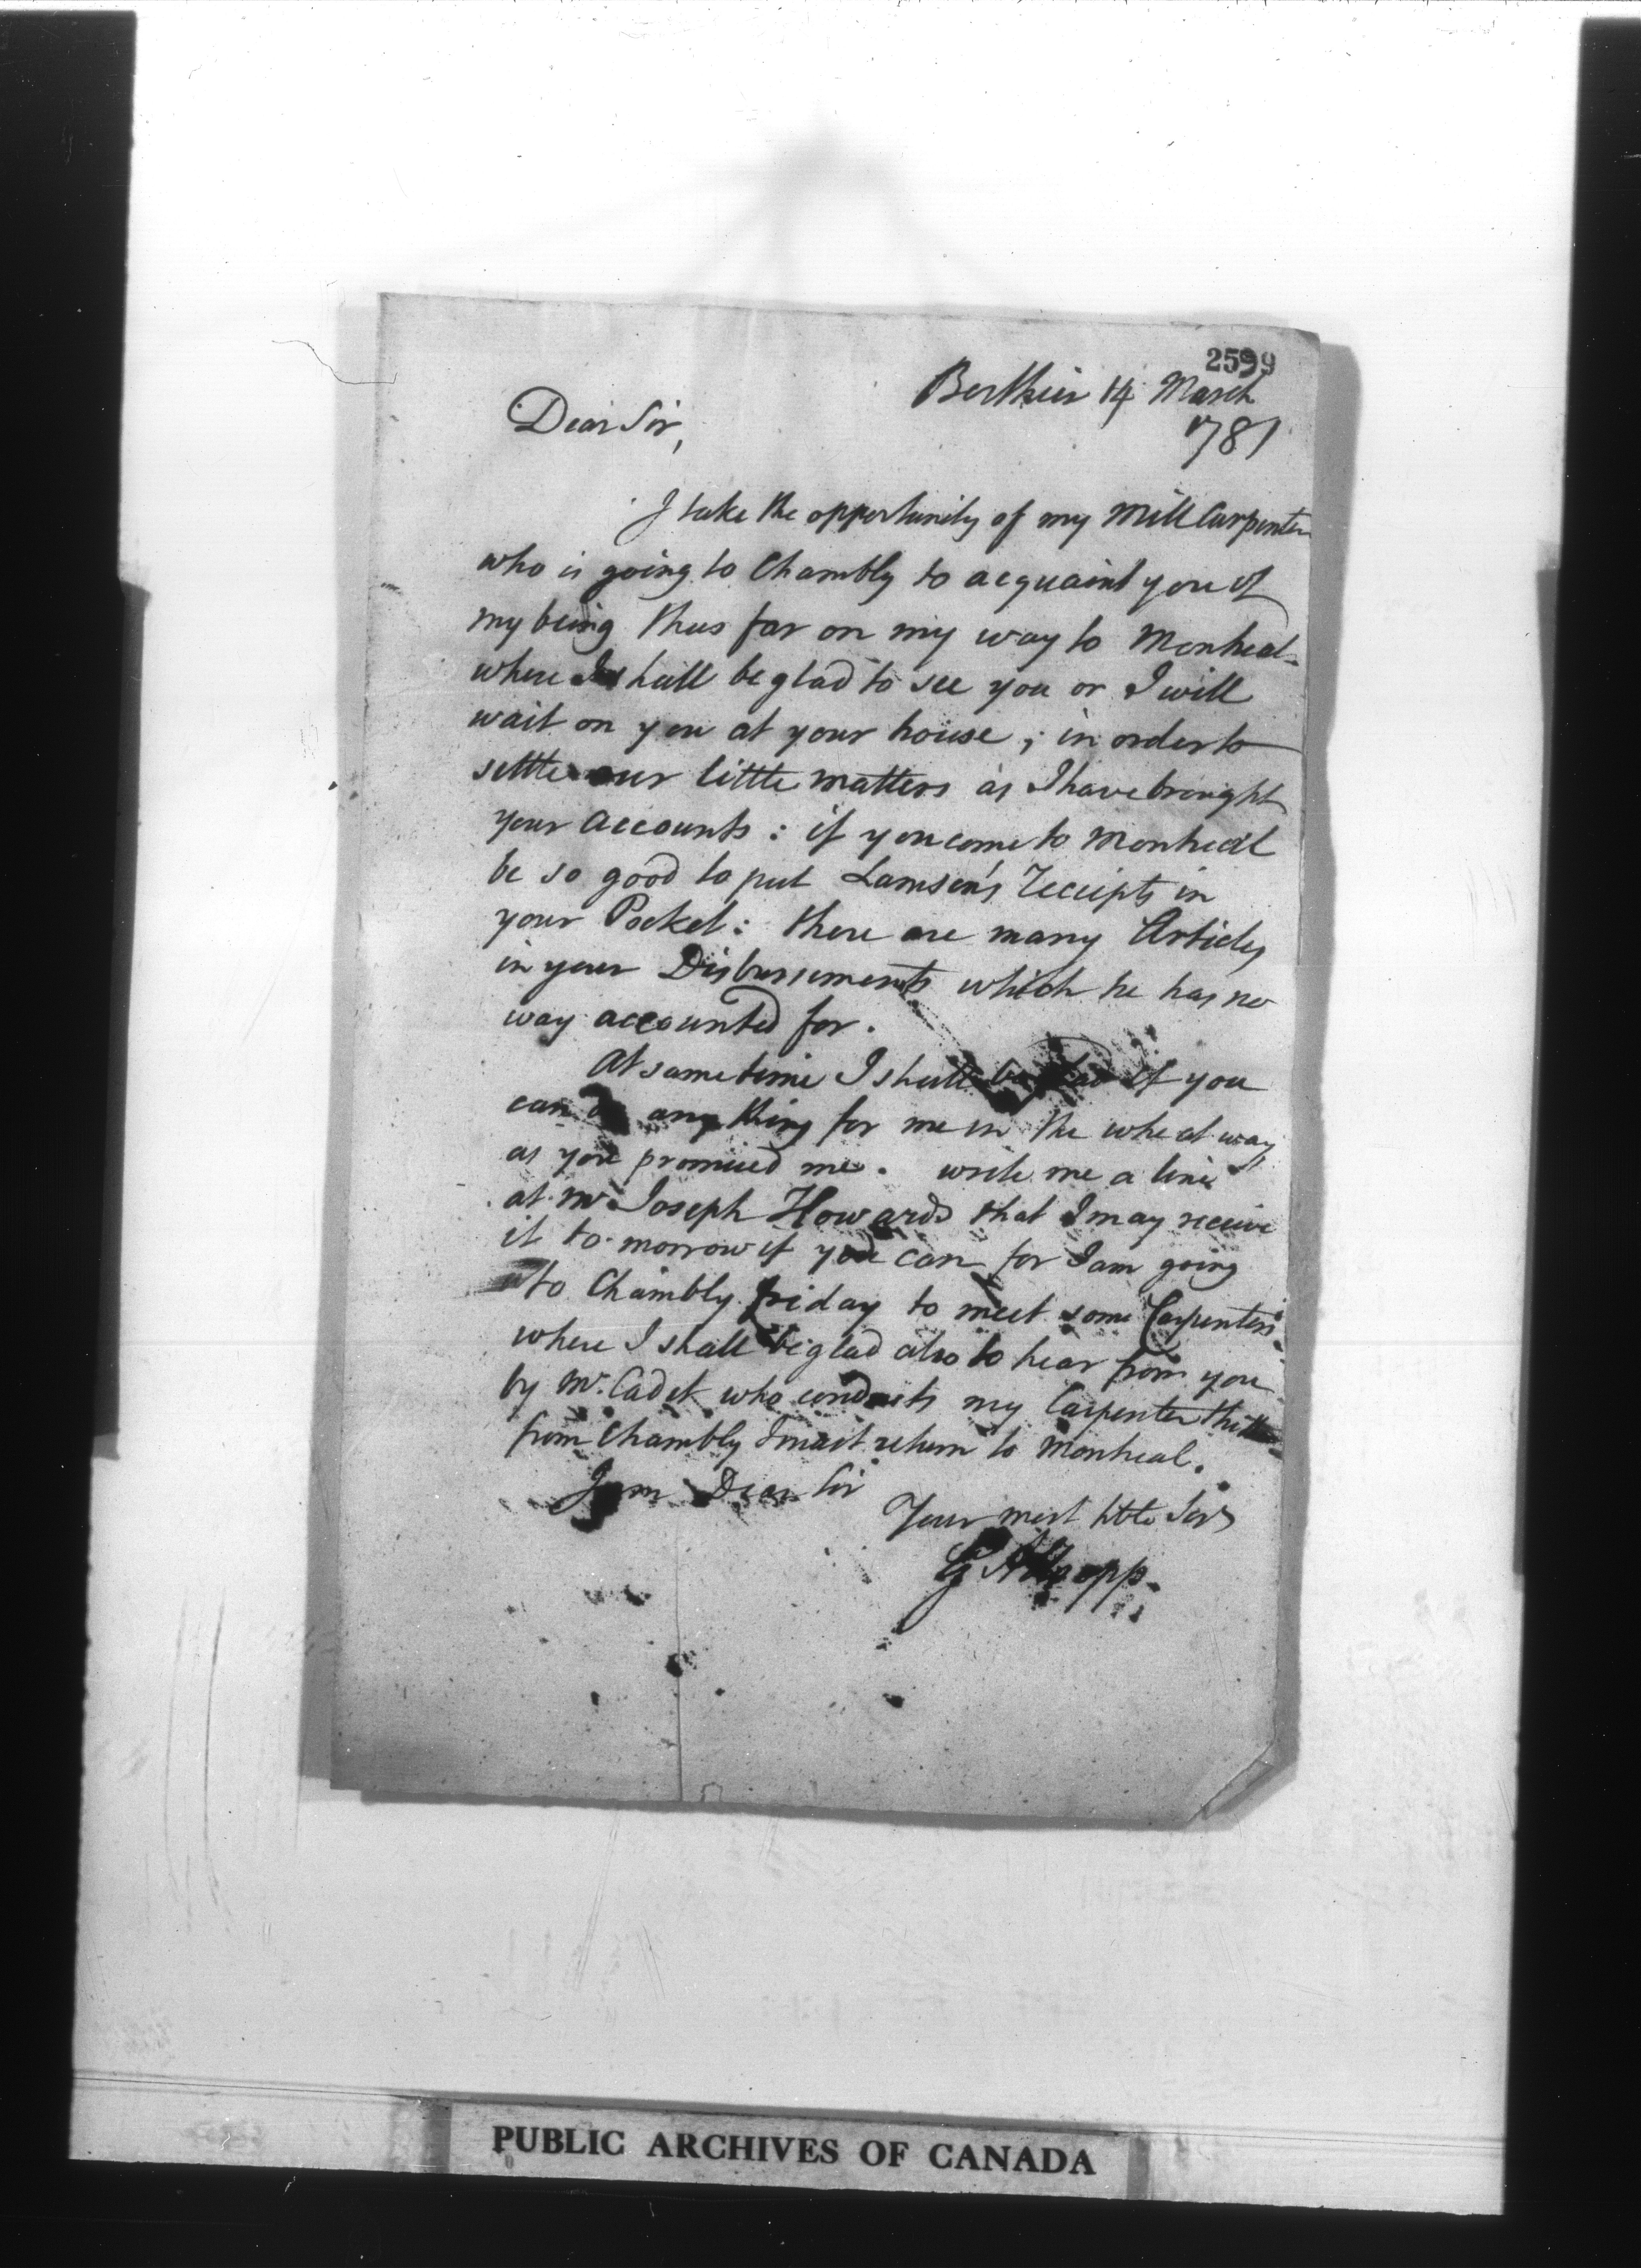 2599
Berthier 14 March
1781
Dear Sir,
I take the opportunity of my Mill Carpenter
who is going to Chambly to acquaint you of
my being thus far on my way to Montreal
where I shall be glad to see you or I will
wait on you at your house; in order to
settle our little matters as I have brought
your accounts: if you come to Montreal
be so good to put Lamson's Receipts in
your Pocket: there are many Articles
in your Disbursements which he has no
way accounted for.
At same time I shall be glad if you
can do any thing for me in the wheat way
as you promised me. write me a line
at Mr. Joseph Howards that I may receive
it to-morrow if you can for I am going
to Chambly friday to meet some Carpenters
where I shall be glad also to hear from you
by Mr. Cadet who conducts my Carpenter
from Chambly I must return to Montreal.
I am Dear Sir
Your most hble Servt
G Allsopp.
PUBLIC ARCHIVES OF CANADA